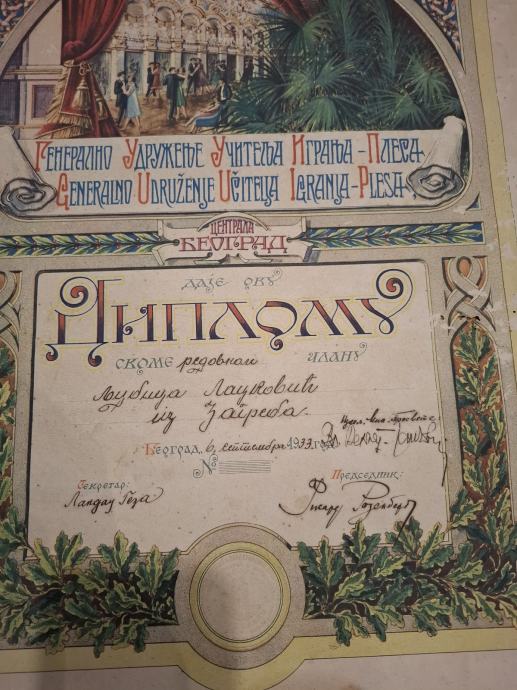 Генерално Удружење Учитеља Играња-Плеса
Generalno Udruženje Učitelja Igranja-Plesa
ЦЕНТРАЛА
БЕОГРАД
ДАЈЕ ОВУ
ДИПЛОМУ
СКОМЕ редовном ЧЛАНУ
из Загреба
Београд, 6. септембра 1933 год.
№
Секретар: Председник:
Ландау Геза Рихард Розенберг